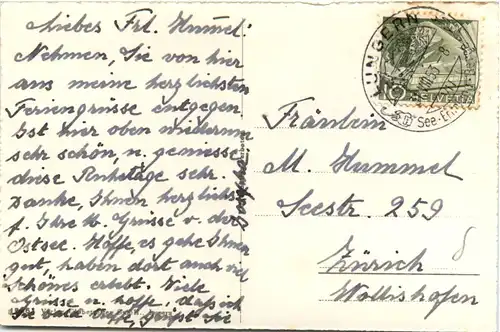 Liebes Frl. Hummel:
Nehmen Sie von hier
aus meine herzlichsten
Feriengrüsse entgegen.
Ist hier oben wiederum
sehr schön, u. geniesse
diese Ruhetage sehr.
Danke, Ihnen herzlichst
f. Ihre lb. Grüsse v. der
Ostsee. Hoffe, es gehe Ihnen
gut, haben dort auch viel
Schönes erlebt. Viele
Grüsse u. hoffe dass ich
Sie bald
LUNGERN
10
HELVETIA
Fräulein
M. Hummel
Seestr. 259
Zürich
Wollishofen